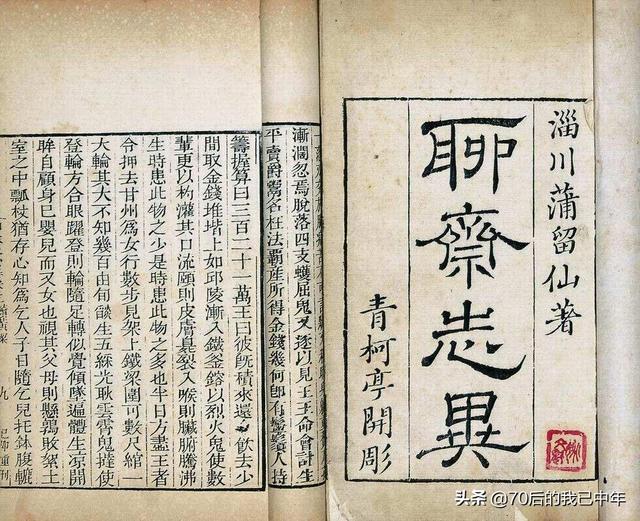 淄川蒲留仙著
聊齋志異
青柯亭開彫
漸闊忽焉脫落四支蠖屈鬼又逐以見王王命會計生
平賣爵鬻名枉法霸産所得金錢幾何即有鬡鬚人持
籌握算曰三百二十一萬王曰彼既積來還飲去少
間取金錢堆堦上如邱陵漸入鐵釜鎔以烈火鬼使數
輩更以杓灌其口流頤則皮膚臭裂入喉則臟腑騰沸
生時患此物之少是時患此物之多也半日方盡王者
令押去甘州爲女行數步見架上鐵梁圍可數尺綰一
大輪其大不知幾百由旬燄生五綵光耿雲霄鬼撻使
登輪方合眼躍登則輪隨足轉似覺傾墜遍體生凉開
眸自顧身已嬰兒而又女也視其父母則懸鶉敗絮土
室之中瓢杖猶存心知爲乞人子日隨乞兒托鉢腹轆
九
頭条 @70后的我已中年